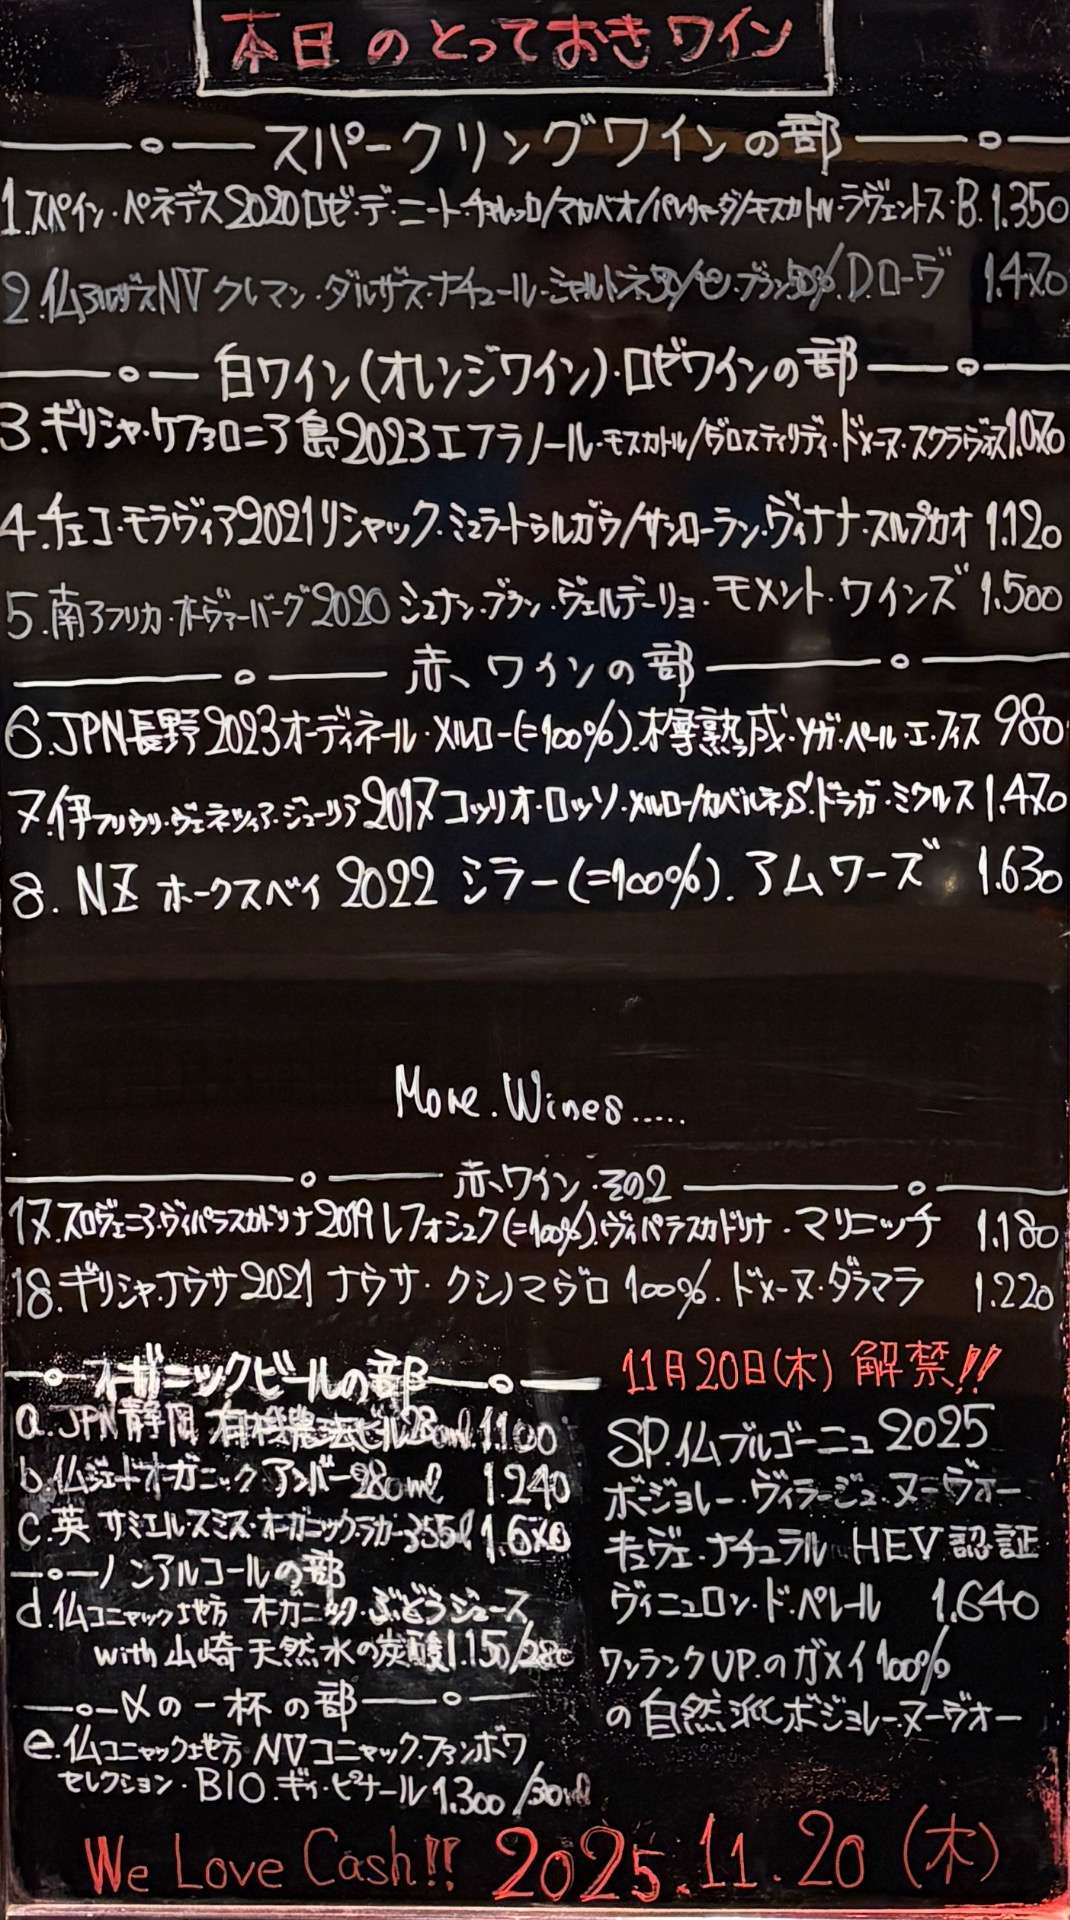 本日のとっておきワイン
スパークリングワインの部
1.スペイン・ペネデス2020ロゼ・デ・ニート・チャレッロ/マカベオ/パレリャーダ/モスカトル・ラヴェントス・B. 1.350
2.仏アルザスNVクレマン・ダルザス・ナチュール・シャルドネ50/ピノ・ブラン50%. D.ローヴ 1.470
白ワイン(オレンジワイン)・ロゼワインの部
3.ギリシャ・ケファロニア島2023エフラノール・モスカトル/ヴロスティリディ・ドメーヌ・スクラヴォス1.070
4.チェコ・モラヴィア2021リシャック・ミュラートゥルガウ/サンローラン・ヴィナナ・スルプカオ 1.120
5.南アフリカ・オーヴァーバーグ2020 シュナン・ブラン・ヴェルデーリョ・モメント・ワインズ 1.500
赤ワインの部
6.JPN長野2023オーディネール・メルロー(=100%).樽熟成・ソガ・ペール・エ・フィス 980
7.伊フリウリ・ヴェネツィア・ジューリア2017コッリオ・ロッソ・メルロー/カベルネS.ドラガ・ミクルス 1.470
8. NZ ホークスベイ 2022 シラー(=100%). アムワーズ 1.630
More.Wines.....
赤ワイン・その2
17.スロヴェニア・ヴィパラスカドリナ2019レフォシュク(=100%).ヴィパラスカドリナ・マリニッチ 1.180
18.ギリシャ・ナウサ2021 ナウサ・クシノマヴロ 100%. ドメーヌ・ダラマラ 1.220
オーガニックビールの部
a.JPN静岡 有機農法ビール 1.100
b.仏ジェードオーガニック アンバー280ml 1.240
c.英 サミエルスミス・オーガニックラガー355ml 1.670
ノンアルコールの部
d.仏コニャック地方 オーガニック・ぶどうジュース
with 山崎天然水の炭酸1.150/280
〆の一杯の部
e.仏コニャック地方 NVコニャック・ファンボワ
セレクション・BIO.ギィ・ピナール 1.300/30ml
11月20日(木) 解禁!!
SP.仏ブルゴーニュ2025
ボージョレー・ヴィラージュ・ヌーヴォー
キュヴェ・ナチュラル HEV認証
ヴィニュロン・ド・ペレール 1.640
ワンランクUP.のガメイ100%
の自然派ボージョレーヌーヴォー
We Love Cash!! 2025.11.20(木)